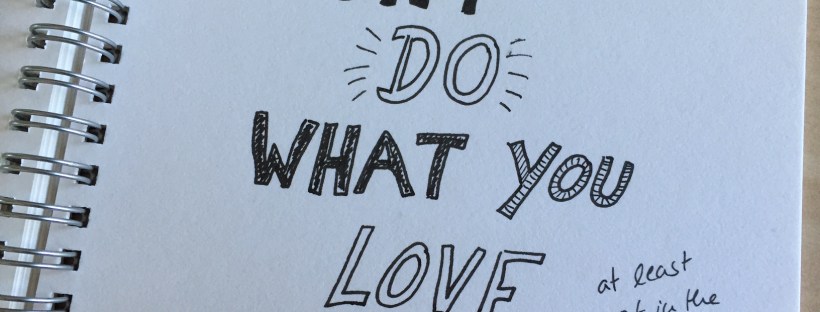 DO
WHAT YOU
LOVE
at least
in the